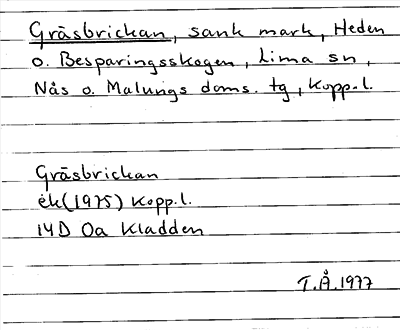 Gräsbrickan, sank mark, Heden
o. Besparingsskogen, Lima sn,
Nås o. Malungs doms. tg, Kopp.l.
Gräsbrickan
ek(1975) Kopp.l.
14D 0a Kladden
T.Å.1977